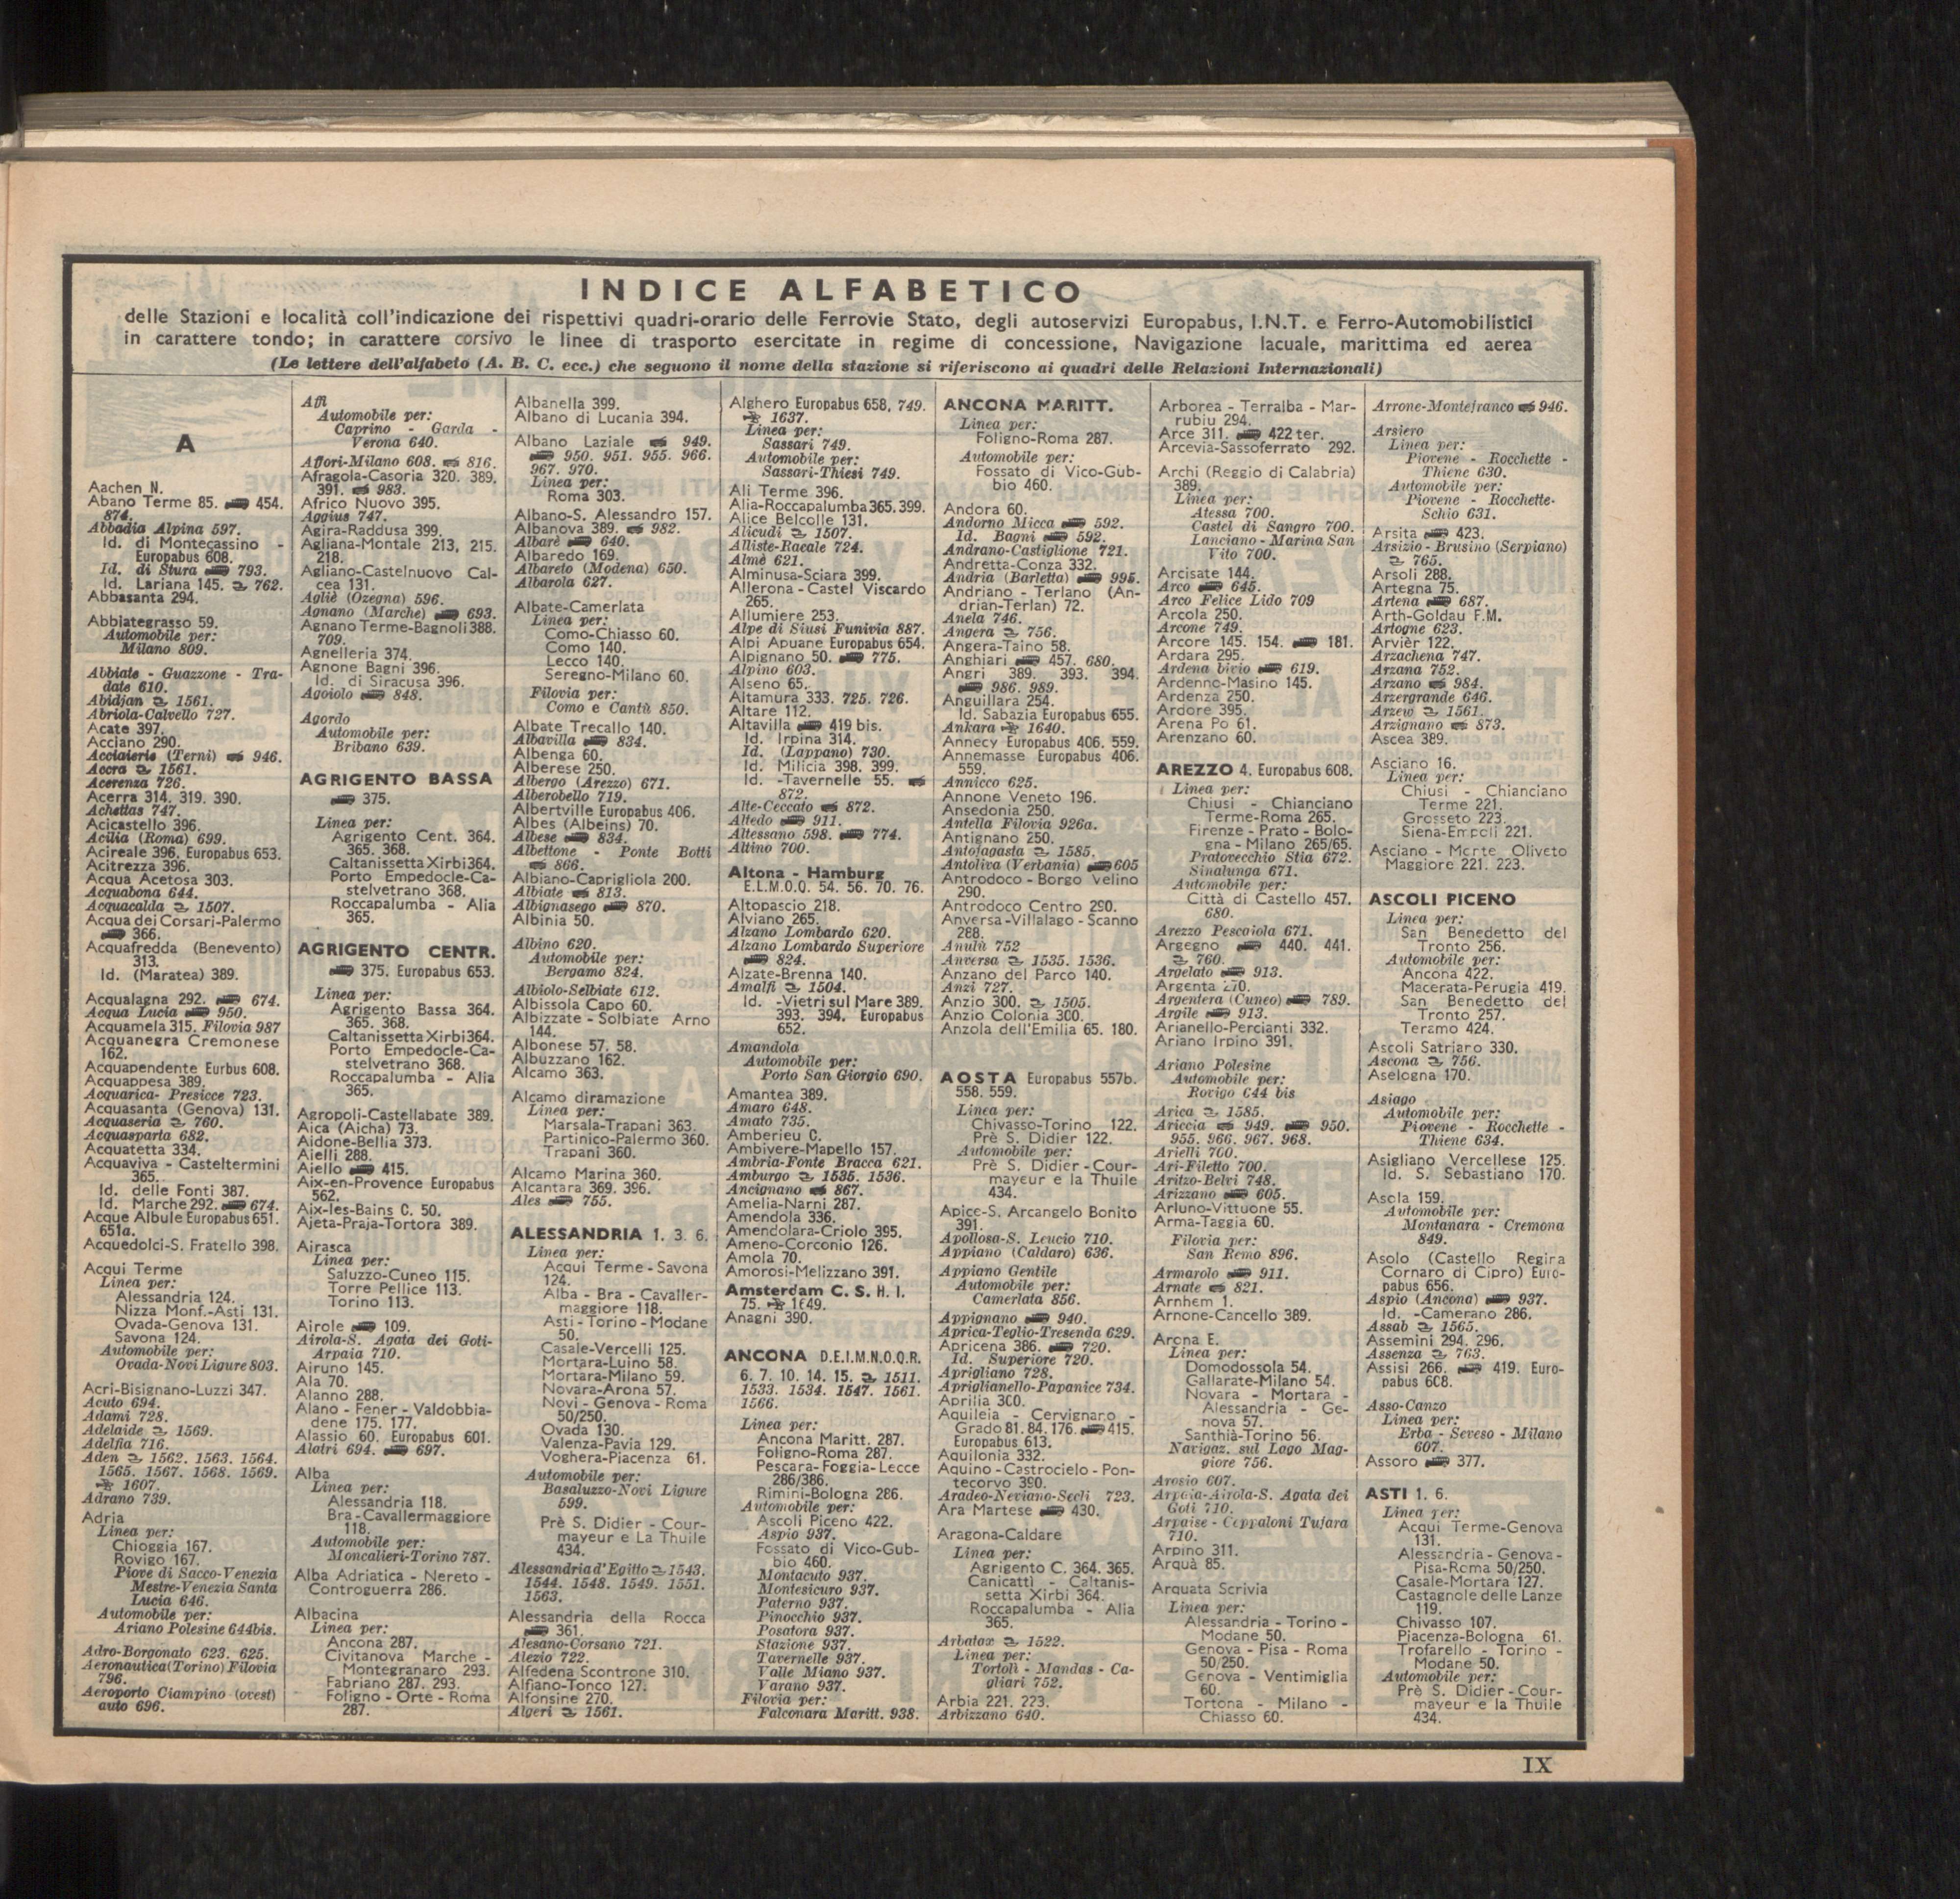 INDICE ALFABETICO
delle Stazioni e località coll'indicazione dei rispettivi quadri-orario delle Ferrovie Stato, degli autoservizi Europabus, I.N.T. e Ferro-Automobilistici
in carattere tondo; in carattere corsivo le linee di trasporto esercitate in regime di concessione, Navigazione lacuale, marittima ed aerea
(Le lettere dell'alfabeto (A. B. C. ecc.) che seguono il nome della stazione si riferiscono ai quadri delle Relazioni Internazionali)
A
Aachen N.
Abano Terme 85. 454.
874.
Abbadia Alpina 597.
Id. di Montecassino -
Europabus 608.
Id. di Stura 793.
Id. Lariana 145. 762.
Abbasanta 294.
Abbiategrasso 59.
Automobile per:
Milano 809.
Abbiate - Guazzone - Tra-
date 610.
Abidjan 1561.
Abriola-Calvello 727.
Acate 397.
Acciano 290.
Acciaierie (Terni) 946.
Accra 1561.
Acerenza 726.
Acerra 314. 319. 390.
Achettas 747.
Acicastello 396.
Acilia (Roma) 699.
Acireale 396. Europabus 653.
Acitrezza 396.
Acqua Acetosa 303.
Acquabona 644.
Acquacalda 1507.
Acqua dei Corsari-Palermo
366.
Acquafredda (Benevento)
313.
Id. (Maratea) 389.
Acqualagna 292. 674.
Acqua Lucia 950.
Acquamela 315. Filovia 987
Acquanegra Cremonese
162.
Acquapendente Eurbus 608.
Acquappesa 389.
Acquarica- Presicce 723.
Acquasanta (Genova) 131.
Acquaseria 760.
Acquasparta 682.
Acquatetta 334.
Acquaviva - Casteltermini
365.
Id. delle Fonti 387.
Id. Marche 292. 674.
Acque Albule Europabus 651.
651a.
Acquedolci-S. Fratello 398.
Acqui Terme
Linea per:
Alessandria 124.
Nizza Monf.-Asti 131.
Ovada-Genova 131.
Savona 124.
Automobile per:
Ovada-Novi Ligure 803.
Acri-Bisignano-Luzzi 347.
Acuto 694.
Adami 728.
Adelaide 1569.
Adelfia 716.
Aden 1562. 1563. 1564.
1565. 1567. 1568. 1569.
1607.
Adrano 739.
Adria
Linea per:
Chioggia 167.
Rovigo 167.
Piove di Sacco-Venezia
Mestre-Venezia Santa
Lucia 646.
Automobile per:
Ariano Polesine 644bis.
Adro-Borgonato 623. 625.
Aeronautica (Torino) Filovia
796.
Aeroporto Ciampino (ovest)
auto 696.
Affi
Automobile per:
Caprino - Garda -
Verona 640.
Affori-Milano 608. 816.
Afragola-Casoria 320. 389.
391. 983.
Africo Nuovo 395.
Aggius 747.
Agira-Raddusa 399.
Agliana-Montale 213, 215.
218.
Agliano-Castelnuovo Cal-
cea 131.
Agliè (Ozegna) 596.
Agnano (Marche) 693.
Agnano Terme-Bagnoli 388.
709.
Agnelleria 374.
Agnone Bagni 396.
Id. di Siracusa 396.
Agoiolo 848.
Agordo
Automobile per:
Bribano 639.
AGRIGENTO BASSA
375.
Linea per:
Agrigento Cent. 364.
365. 368.
Caltanissetta Xirbi 364.
Porto Empedocle-Ca-
stelvetrano 368.
Roccapalumba - Alia
365.
AGRIGENTO CENTR.
375. Europabus 653.
Linea per:
Agrigento Bassa 364.
365. 368.
Caltanissetta Xirbi 364.
Porto Empedocle-Ca-
stelvetrano 368.
Roccapalumba - Alia
365.
Agropoli-Castellabate 389.
Aica (Aicha) 73.
Aidone-Bellia 373.
Aielli 288.
Aiello 415.
Aix-en-Provence Europabus
562.
Aix-les-Bains C. 50.
Ajeta-Praja-Tortora 389.
Airasca
Linea per:
Saluzzo-Cuneo 115.
Torre Pellice 113.
Torino 113.
Airole 109.
Airola-S. Agata dei Goti-
Arpaia 710.
Airuno 145.
Ala 70.
Alanno 288.
Alano - Fener - Valdobbia-
dene 175. 177.
Alassio 60. Europabus 601.
Alatri 694. 697.
Alba
Linea per:
Alessandria 118.
Bra-Cavallermaggiore
118.
Automobile per:
Moncalieri-Torino 787.
Alba Adriatica - Nereto -
Controguerra 286.
Albacina
Linea per:
Ancona 287.
Civitanova Marche -
Montegranaro 293.
Fabriano 287. 293.
Foligno - Orte - Roma
287.
Albanella 399.
Albano di Lucania 394.
Albano Laziale 949.
950. 951. 955. 966.
967. 970.
Linea per:
Roma 303.
Albano-S. Alessandro 157.
Albanova 389. 982.
Albarè 640.
Albaredo 169.
Albareto (Modena) 650.
Albarola 627.
Albate-Camerlata
Linea per:
Como-Chiasso 60.
Como 140.
Lecco 140.
Seregno-Milano 60.
Filovia per:
Como e Cantù 850.
Albate Trecallo 140.
Albavilla 834.
Albenga 60.
Alberese 250.
Albergo (Arezzo) 671.
Alberobello 719.
Albertville Europabus 406.
Albes (Albeins) 70.
Albese 834.
Albettone - Ponte Botti
866.
Albiano-Caprigliola 200.
Albiate 813.
Albignasego 870.
Albinia 50.
Albino 620.
Automobile per:
Bergamo 824.
Albiolo-Selbiate 612.
Albissola Capo 60.
Albizzate - Solbiate Arno
144.
Albonese 57. 58.
Albuzzano 162.
Alcamo 363.
Alcamo diramazione
Linea per:
Marsala-Trapani 363.
Partinico-Palermo 360.
Trapani 360.
Alcamo Marina 360.
Alcantara 369. 396.
Ales 755.
ALESSANDRIA 1. 3. 6.
Linea per:
Acqui Terme - Savona
124.
Alba - Bra - Cavaller-
maggiore 118.
Asti - Torino - Modane
50.
Casale-Vercelli 125.
Mortara-Luino 58.
Mortara-Milano 59.
Novara-Arona 57.
Novi - Genova - Roma
50/250.
Ovada 130.
Valenza-Pavia 129.
Voghera-Piacenza 61.
Automobile per:
Basaluzzo-Novi Ligure
599.
Prè S. Didier - Cour-
mayeur e La Thuile
434.
Alessandria d'Egitto 1543.
1544. 1548. 1549. 1551.
1563.
Alessandria della Rocca
361.
Alesano-Corsano 721.
Alezio 722.
Alfedena Scontrone 310.
Alfiano-Tonco 127.
Alfonsine 270.
Algeri 1561.
Alghero Europabus 658, 749.
1637.
Linea per:
Sassari 749.
Automobile per:
Sassari-Thiesi 749.
Ali Terme 396.
Alia-Roccapalumba 365. 399.
Alice Belcolle 131.
Alicudi 1507.
Alliste-Racale 724.
Almè 621.
Alminusa-Sciara 399.
Allerona - Castel Viscardo
265.
Allumiere 253.
Alpe di Siusi Funivia 887.
Alpi Apuane Europabus 654.
Alpignano 50. 775.
Alpino 603.
Alseno 65.
Altamura 333. 725. 726.
Altare 112.
Altavilla 419 bis.
Id. Irpina 314.
Id. (Lappano) 730.
Id. Milicia 398. 399.
Id. -Tavernelle 55.
872.
Alte-Ceccato 872.
Altedo 911.
Altessano 598. 774.
Altino 700.
Altona - Hamburg
E.L.M.O.Q. 54. 56. 70. 76.
Altopascio 218.
Alviano 265.
Alzano Lombardo 620.
Alzano Lombardo Superiore
824.
Alzate-Brenna 140.
Amalfi 1504.
Id. -Vietri sul Mare 389.
393. 394. Europabus
652.
Amandola
Automobile per:
Porto San Giorgio 690.
Amantea 389.
Amaro 648.
Amato 735.
Amberieu C.
Ambivere-Mapello 157.
Ambria-Fonte Bracca 621.
Amburgo 1535. 1536.
Ancignano 867.
Amelia-Narni 287.
Amendola 336.
Amendolara-Criolo 395.
Ameno-Corconio 126.
Amola 70.
Amorosi-Melizzano 391.
Amsterdam C. S. H. I.
75. 1649.
Anagni 390.
ANCONA D.E.I.M.N.O.Q.R.
6. 7. 10. 14. 15. 1511.
1533. 1534. 1547. 1561.
1566.
Linea per:
Ancona Maritt. 287.
Foligno-Roma 287.
Pescara-Foggia-Lecce
286/386.
Rimini-Bologna 286.
Automobile per:
Ascoli Piceno 422.
Aspio 937.
Fossato di Vico-Gub-
bio 460.
Montacuto 937.
Montesicuro 937.
Paterno 937.
Pinocchio 937.
Posatora 937.
Stazione 937.
Tavernelle 937.
Valle Miano 937.
Varano 937.
Filovia per:
Falconara Maritt. 938.
ANCONA MARITT.
Linea per:
Foligno-Roma 287.
Automobile per:
Fossato di Vico-Gub-
bio 460.
Andora 60.
Andorno Micca 592.
Id. Bagni 592.
Andrano-Castiglione 721.
Andretta-Conza 332.
Andria (Barletta) 995.
Andriano - Terlano (An-
drian-Terlan) 72.
Anela 746.
Angera 756.
Angera-Taino 58.
Anghiari 457. 680.
Angri 389. 393. 394.
986. 989.
Anguillara 254.
Id. Sabazia Europabus 655.
Ankara 1640.
Annecy Europabus 406. 559.
Annemasse Europabus 406.
559.
Annicco 625.
Annone Veneto 196.
Ansedonia 250.
Antella Filovia 926a.
Antignano 250.
Antofagasta 1585.
Antoliva (Verbania) 605
Antrodoco - Borgo Velino
290.
Antrodoco Centro 290.
Anversa-Villalago - Scanno
288.
Anulù 752
Anversa 1535. 1536.
Anzano del Parco 140.
Anzi 727.
Anzio 300. 1505.
Anzio Colonia 300.
Anzola dell'Emilia 65. 180.
AOSTA Europabus 557b.
558. 559.
Linea per:
Chivasso-Torino 122.
Prè S. Didier 122.
Automobile per:
Prè S. Didier - Cour-
mayeur e la Thuile
434.
Apice-S. Arcangelo Bonito
391.
Apollosa-S. Leucio 710.
Appiano (Caldaro) 636.
Appiano Gentile
Automobile per:
Camerlata 856.
Appignano 940.
Aprica-Teglio-Tresenda 629.
Apricena 386. 720.
Id. Superiore 720.
Aprigliano 728.
Apriglianello-Papanice 734.
Aprilia 300.
Aquileia - Cervignano -
Grado 81. 84. 176. 415.
Europabus 613.
Aquilonia 332.
Aquino - Castrocielo - Pon-
tecorvo 390.
Aradeo-Neviano-Seclì 723.
Ara Martese 430.
Aragona-Caldare
Linea per:
Agrigento C. 364. 365.
Canicattì - Caltanis-
setta Xirbi 364.
Roccapalumba - Alia
365.
Arbatax 1522.
Linea per:
Tortolì - Mandas - Ca-
gliari 752.
Arbia 221. 223.
Arbizzano 640.
Arborea - Terralba - Mar-
rubiu 294.
Arce 311. 422 ter.
Arcevia-Sassoferrato 292.
Archi (Reggio di Calabria)
389.
Linea per:
Atessa 700.
Castel di Sangro 700.
Lanciano - Marina San
Vito 700.
Arcisate 144.
Arco 645.
Arco Felice Lido 709
Arcola 250.
Arcone 749.
Arcore 145. 154. 181.
Ardara 295.
Ardena bivio 619.
Ardenno-Masino 145.
Ardenza 250.
Ardore 395.
Arena Po 61.
Arenzano 60.
AREZZO 4. Europabus 608.
Linea per:
Chiusi - Chianciano
Terme-Roma 265.
Firenze - Prato - Bolo-
gna - Milano 265/65.
Pratovecchio Stia 672.
Sinalunga 671.
Automobile per:
Città di Castello 457.
680.
Arezzo Pescaiola 671.
Argegno 440. 441.
760.
Argelato 913.
Argenta 270.
Argentera (Cuneo) 789.
Argile 913.
Arianello-Percianti 332.
Ariano Irpino 391.
Ariano Polesine
Automobile per:
Rovigo 644 bis
Arica 1585.
Ariccia 949. 950.
955. 966. 967. 968.
Arielli 700.
Ari-Filetto 700.
Aritzo-Belvì 748.
Arizzano 605.
Arluno-Vittuone 55.
Arma-Taggia 60.
Filovia per:
San Remo 896.
Armarolo 911.
Arnate 821.
Arnhem 1.
Arnone-Cancello 389.
Arona E.
Linea per:
Domodossola 54.
Gallarate-Milano 54.
Novara - Mortara -
Alessandria - Ge-
nova 57.
Santhià-Torino 56.
Navigaz. sul Lago Mag-
giore 756.
Arosio 607.
Arpaia-Airola-S. Agata dei
Goti 710.
Arpaise - Ceppaloni Tufara
710.
Arpino 311.
Arquà 85.
Arquata Scrivia
Linea per:
Alessandria - Torino -
Modane 50.
Genova - Pisa - Roma
50/250.
Genova - Ventimiglia
60.
Tortona - Milano -
Chiasso 60.
Arrone-Montefranco 946.
Arsiero
Linea per:
Piovene - Rocchette -
Thiene 630.
Automobile per:
Piovene - Rocchette-
Schio 631.
Arsita 423.
Arsizio - Brusino (Serpiano)
765.
Arsoli 288.
Artegna 75.
Artena 687.
Arth-Goldau F.M.
Artogne 623.
Arvièr 122.
Arzachena 747.
Arzana 752.
Arzano 984.
Arzergrande 646.
Arzew 1561.
Arzignano 873.
Ascea 389.
Asciano 16.
Linea per:
Chiusi - Chianciano
Terme 221.
Grosseto 223.
Siena-Empoli 221.
Asciano - Monte Oliveto
Maggiore 221. 223.
ASCOLI PICENO
Linea per:
San Benedetto del
Tronto 256.
Automobile per:
Ancona 422.
Macerata-Perugia 419.
San Benedetto del
Tronto 257.
Teramo 424.
Ascoli Satriano 330.
Ascona 756.
Aselogna 170.
Asiago
Automobile per:
Piovene - Rocchette -
Thiene 634.
Asigliano Vercellese 125.
Id. S. Sebastiano 170.
Asola 159.
Automobile per:
Montanara - Cremona
849.
Asolo (Castello Regina
Cornaro di Cipro) Euro-
pabus 656.
Aspio (Ancona) 937.
Id. -Camerano 286.
Assab 1565.
Assemini 294. 296.
Assenza 763.
Assisi 266. 419. Euro-
pabus 608.
Asso-Canzo
Linea per:
Erba - Seveso - Milano
607.
Assoro 377.
ASTI 1. 6.
Linea per:
Acqui Terme-Genova
131.
Alessandria - Genova -
Pisa-Roma 50/250.
Casale-Mortara 127.
Castagnole delle Lanze
119.
Chivasso 107.
Piacenza-Bologna 61.
Trofarello - Torino -
Modane 50.
Automobile per:
Prè S. Didier - Cour-
mayeur e la Thuile
434.
IX